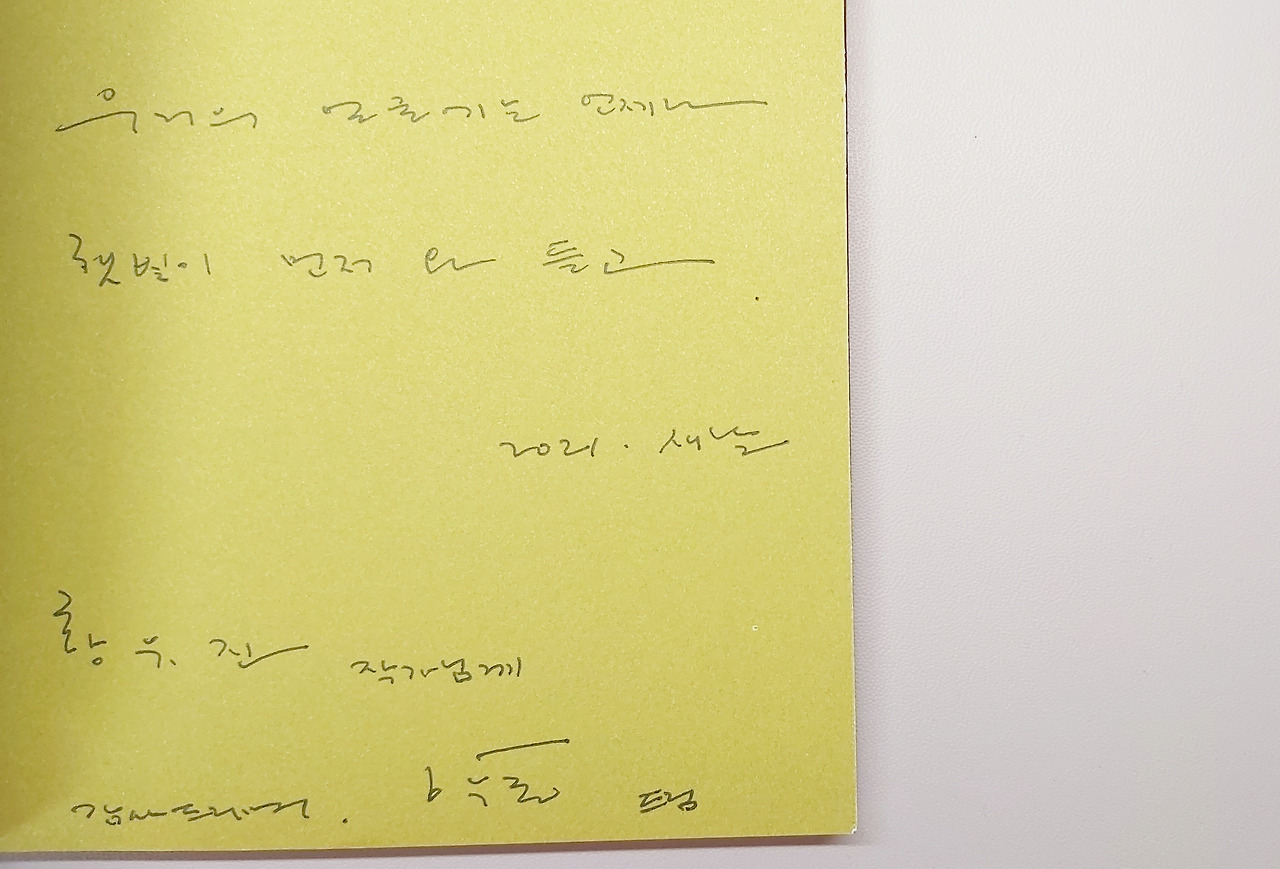 우리의 언제나
햇빛이 먼저 와 들고
2021. 새날
황우진 작가님께
감사드리며. 드림